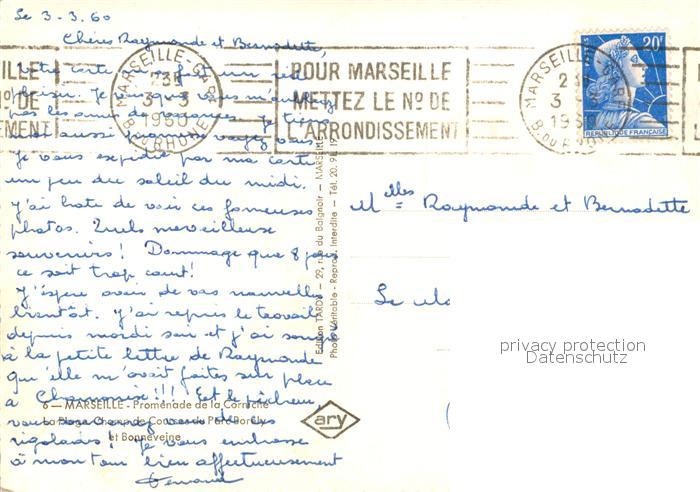 Le 3-3.60
Chères Raymonde et Bernadette,
Votre carte m'a fait un réel
plaisir. Je
pas les
aussi voyez vous
Je vous expédie par ma carte
un peu du soleil du midi.
J'ai hate de voir ces fameuses
photos. Quels merveilleuse
souvenirs! Dommage que 8 jours
ce soit trop court!
J'espère avoir de vos nouvelles
bientôt. J'ai repris le travail
depuis mardi soir et j'ai
à la petite lettre de Raymonde
qu'elle m'avait faites sur place
à Chamonix!!! Est le pêcheur,
vous
rigolades! Je vous embrasse
à mon tour bien affectueusement
Fernand
MARSEILLE-GARE
23H
3-3
1960
B. DU RHONE
POUR MARSEILLE
METTEZ LE Nº DE
L'ARRONDISSEMENT
20F
REPUBLIQUE FRANÇAISE
Melles Raymonde et Bernadette
Le
privacy protection
Datenschutz
Edition TARDY - 29, rue du Baignoir - MARSEILLE - Tél. 20.98
Photo Véritable - Reprod. Interdite
6 - MARSEILLE - Promenade de la Corniche
La Plage, Champ de Courses du Parc Borély
et Bonneveine
ary